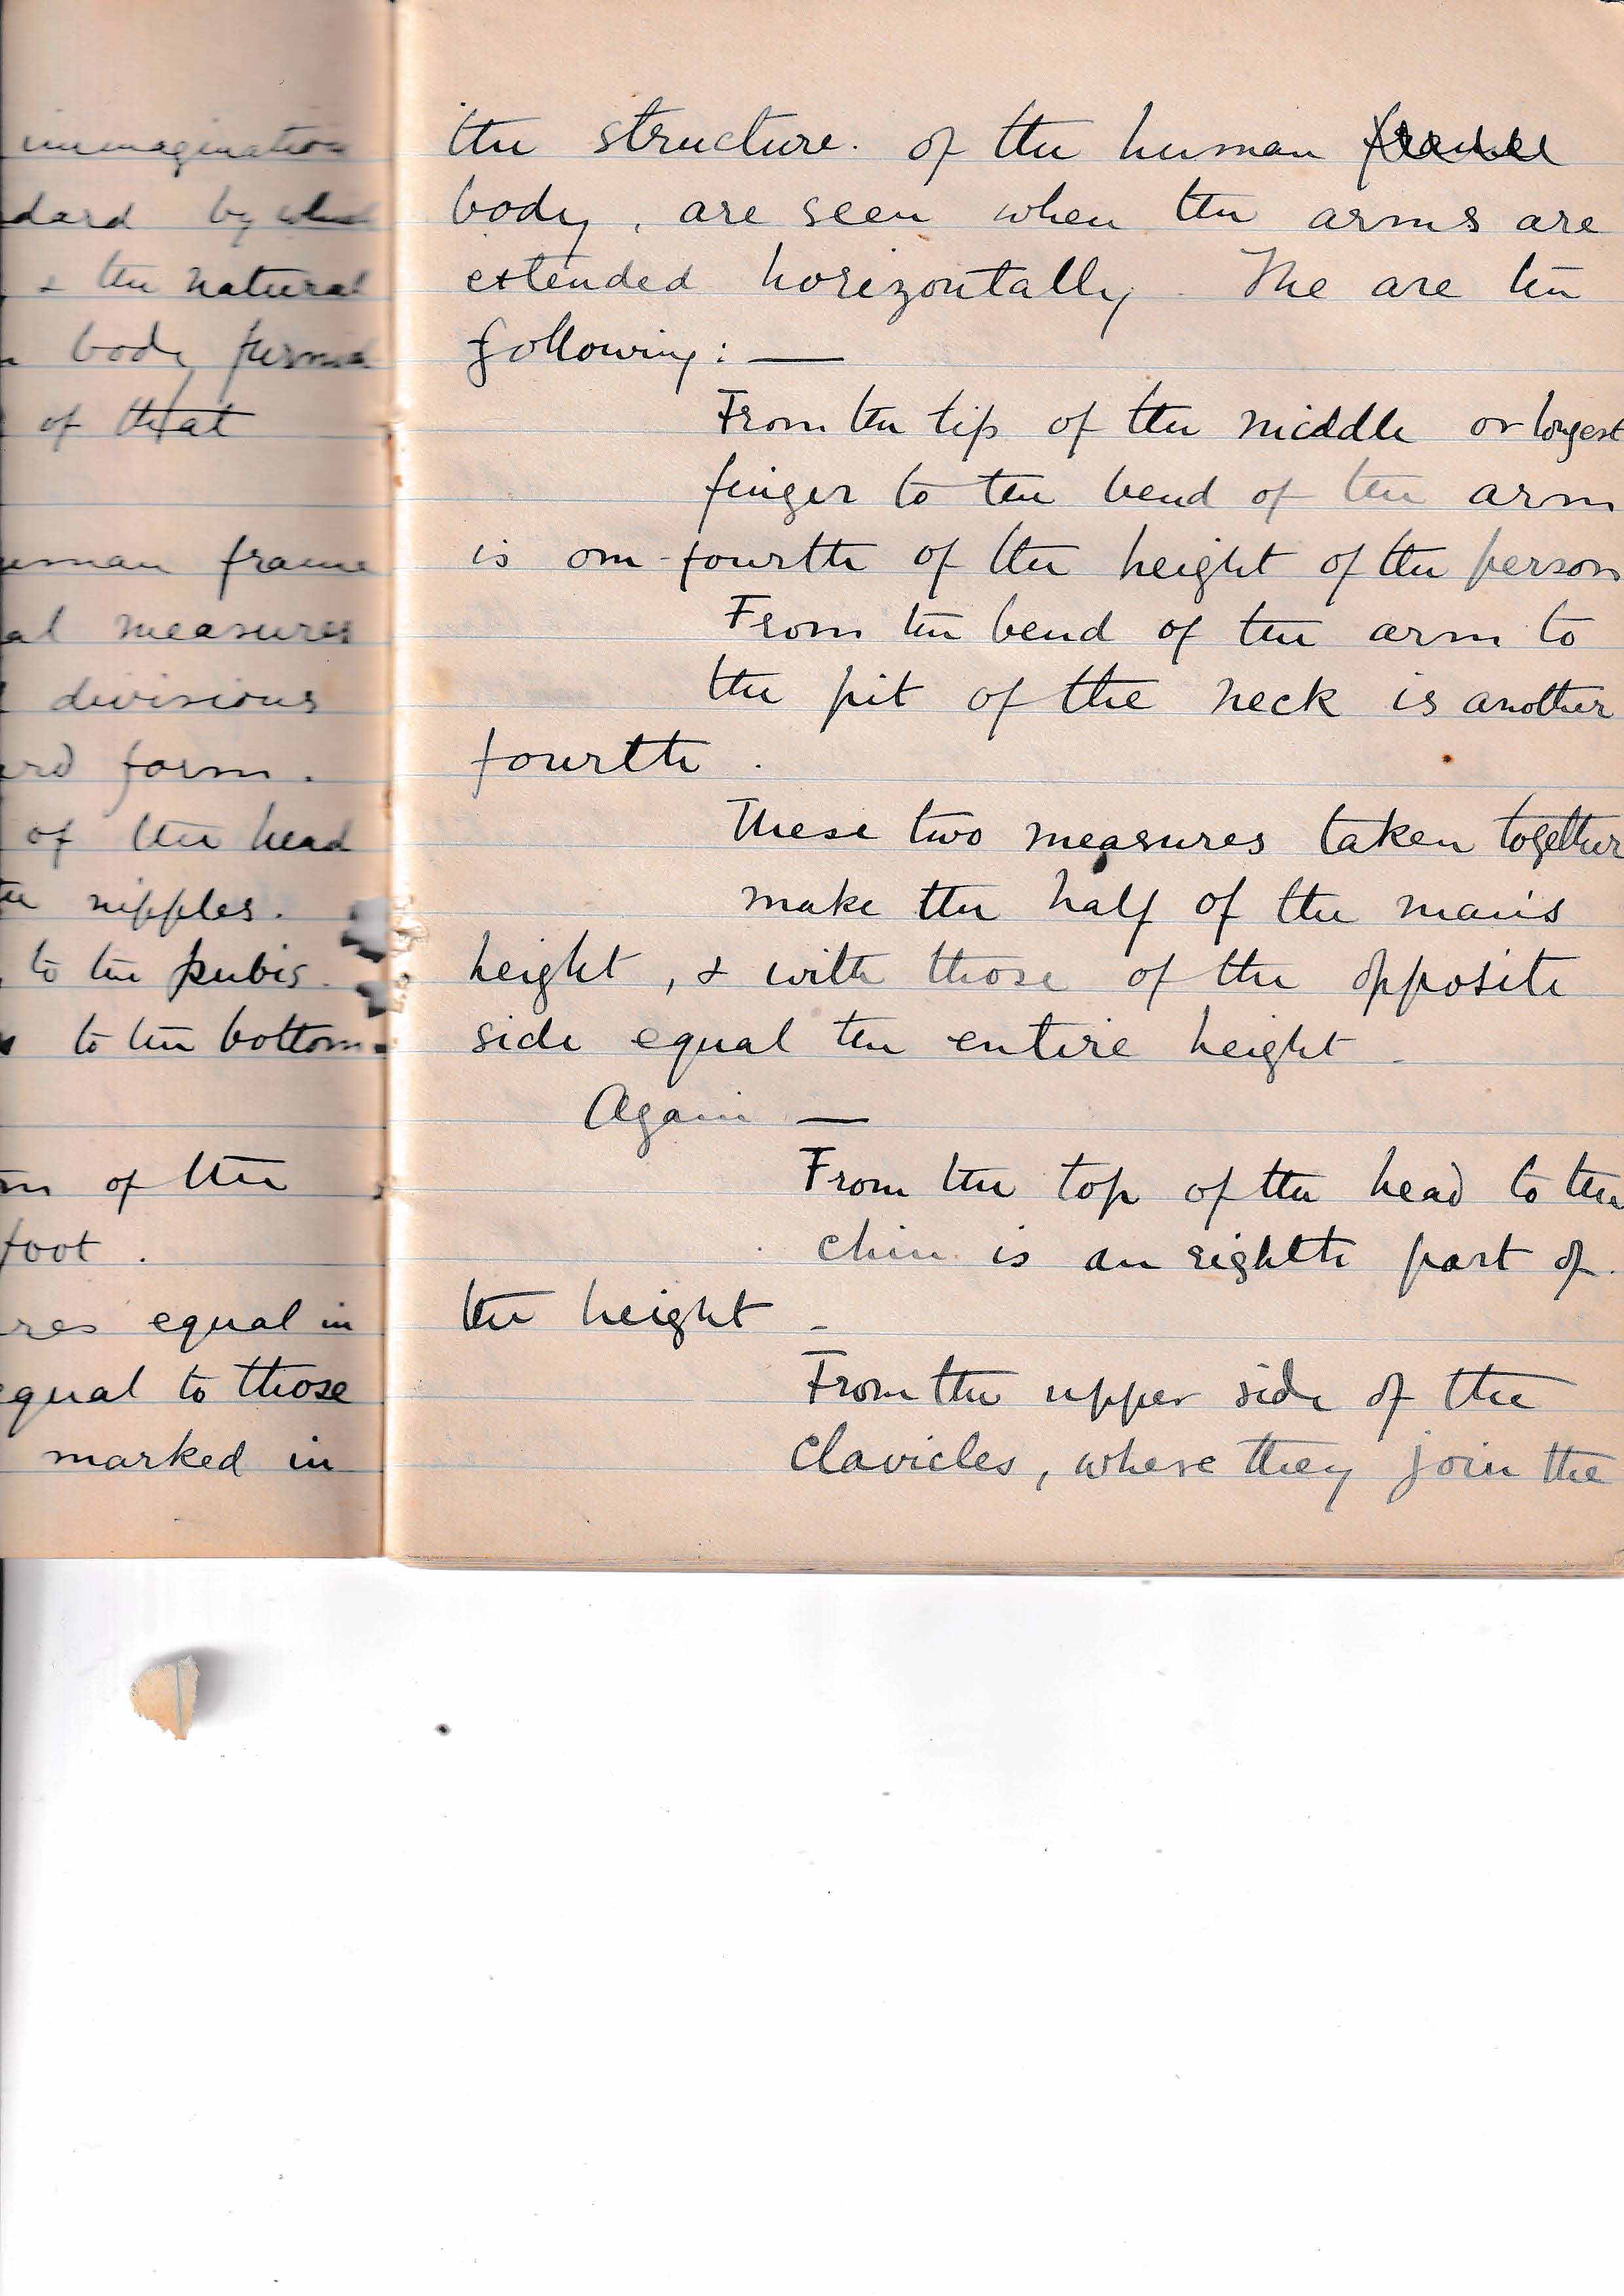 immagination
dard by which
& the natural
body formed
of that
uman frame
al measures
divisions
rd form.
of the head
the nipples.
to the pubis.
to the bottom
m of the
foot.
res equal in
equal to those
marked in
the structure. of the human
body, are seen when the arms are
extended horizontally. The are the
following: —
From the tip of the middle or longest
finger to the bend of the arm
is one-fourth of the height of the person
From the bend of the arm to
the pit of the neck is another
fourth.
These two measures taken together
make the half of the man's
height, & with those of the opposite
side equal the entire height.
Again —
From the top of the head to the
chin is an eighth part of.
the height -
From the upper side of the
clavicles, where they join the